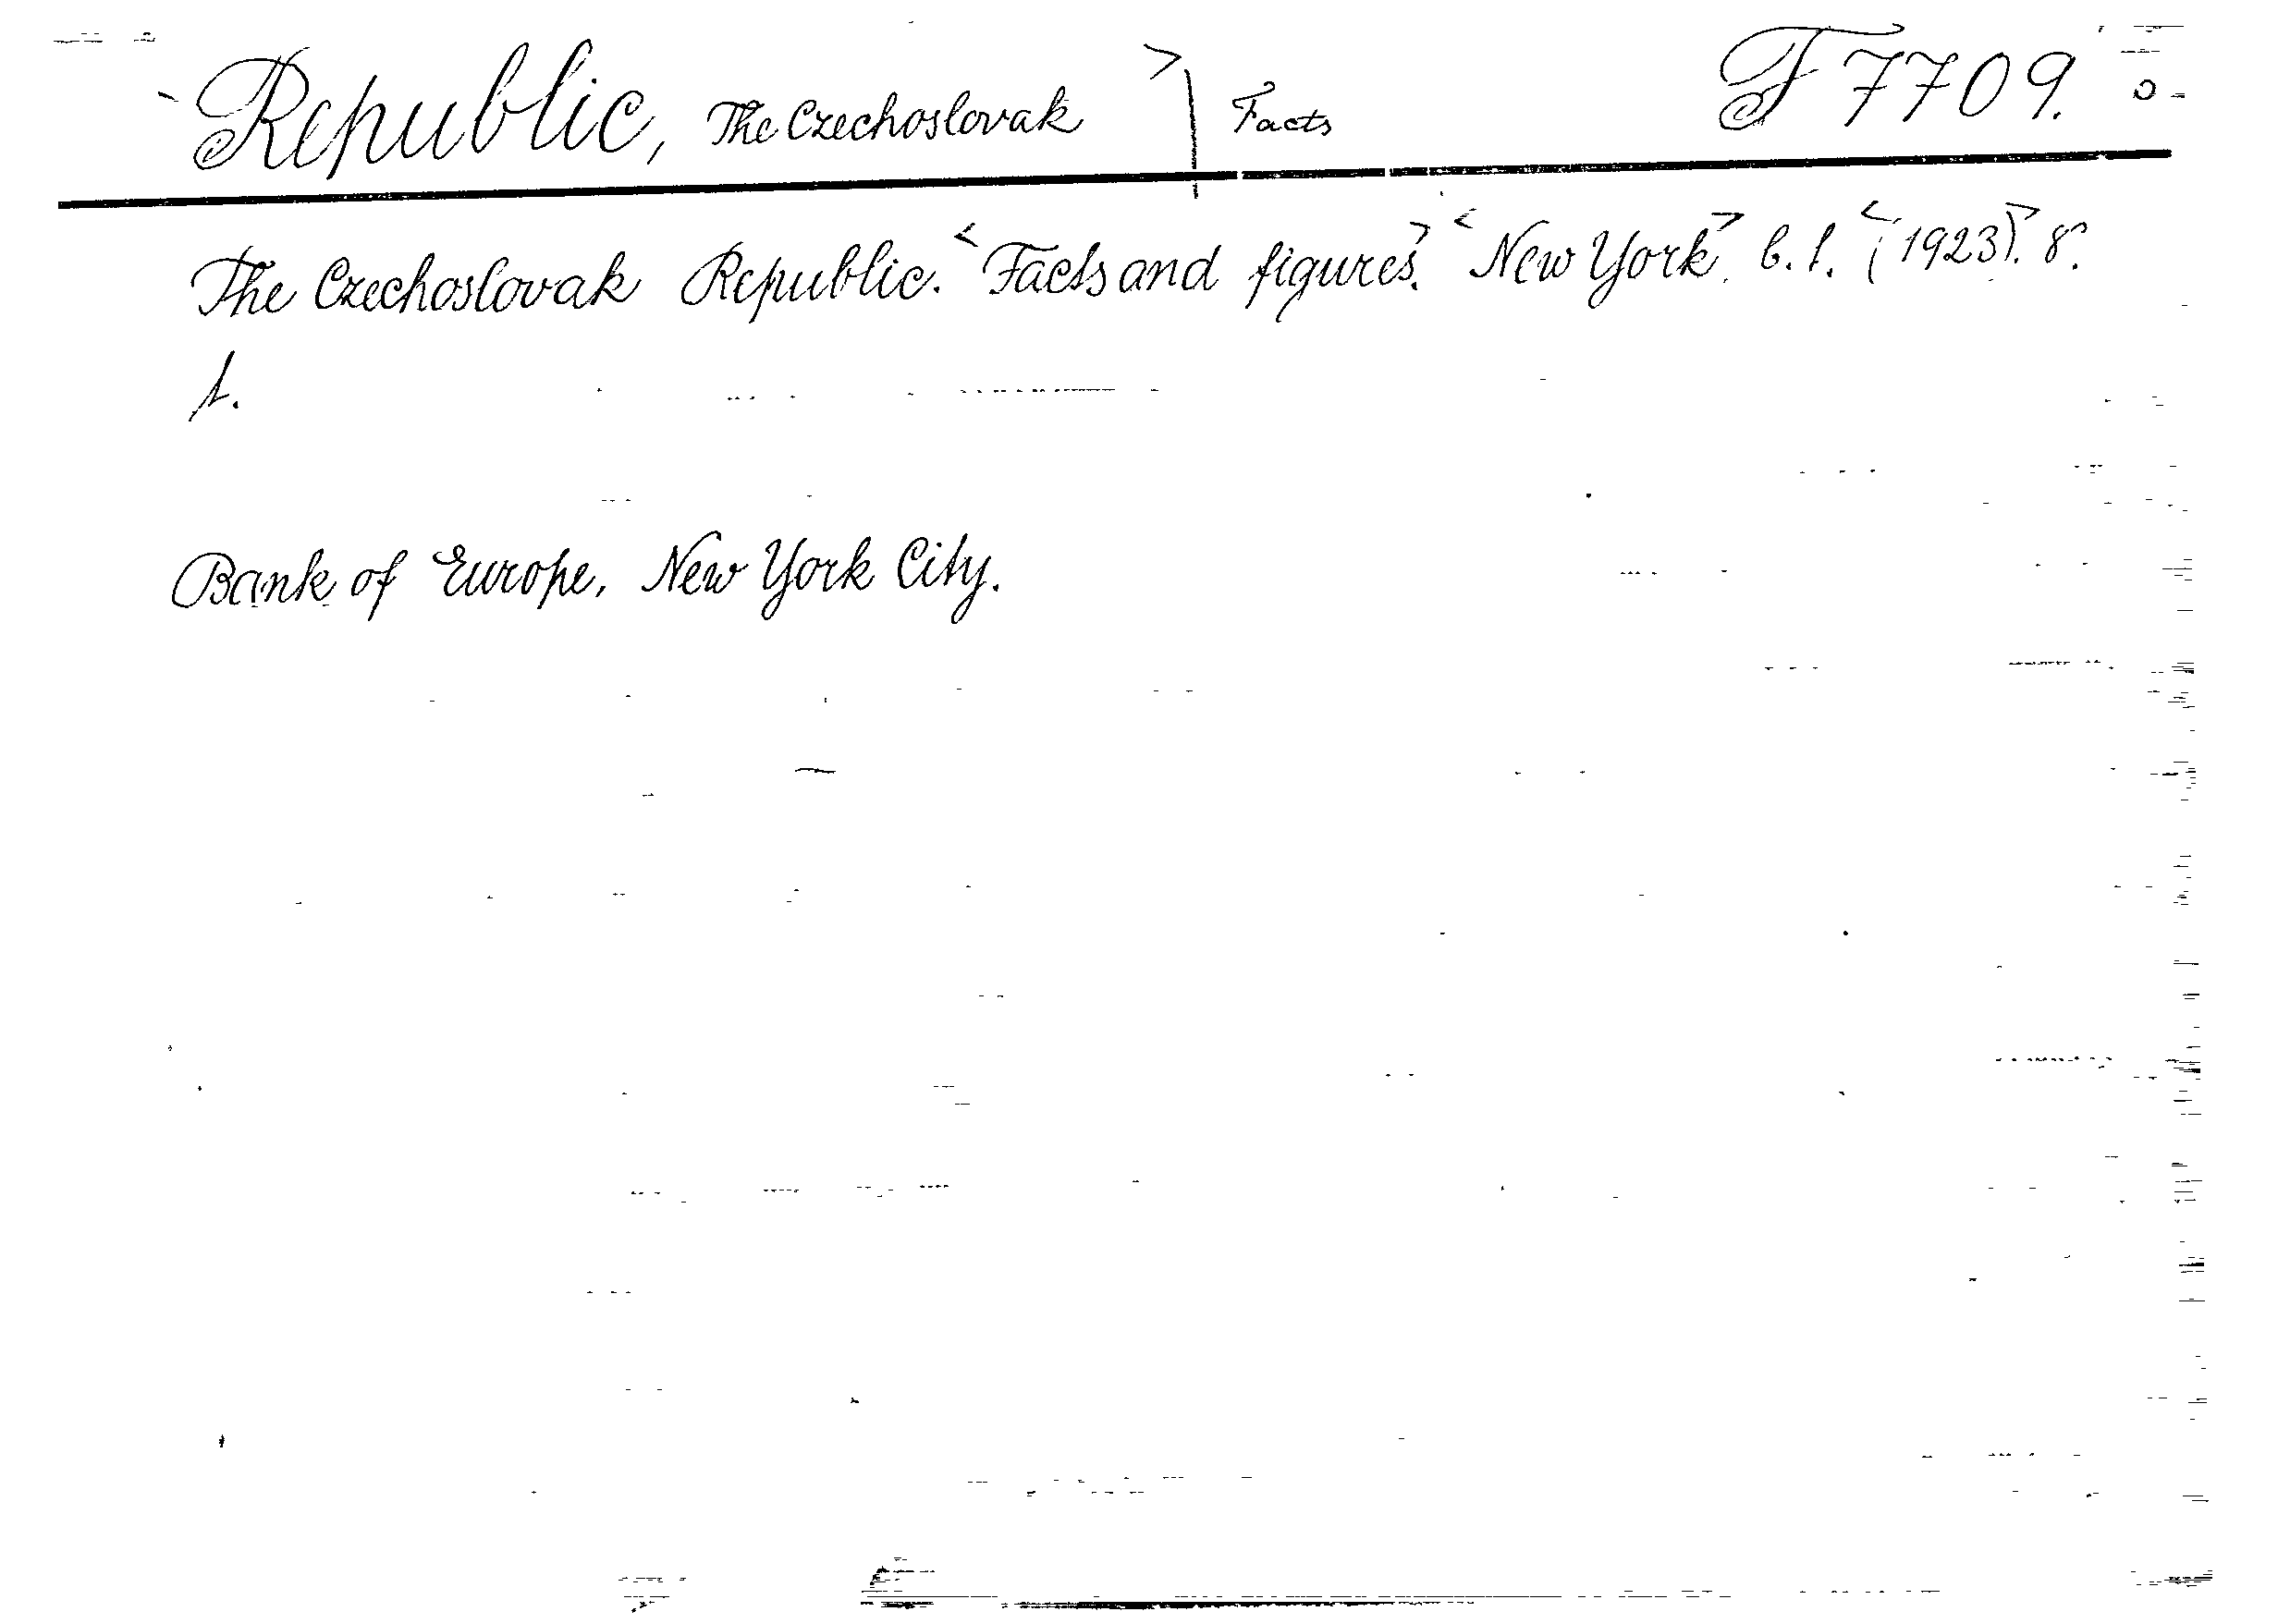 Republic, The Czechoslovak > Facts F 7709.
The Czechoslovak Republic. <Facts and figures.> <New York>. b. l. <(1923)>. 8°.
1.
Bank of Europe, New York City.